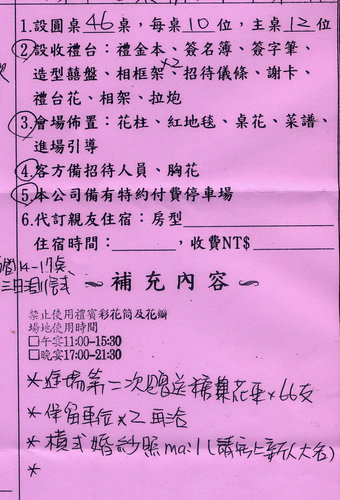 1.設圓桌46桌，每桌10位，主桌12位
②設收禮台：禮金本、簽名簿、簽字筆、
造型囍盤、相框架、招待儀條、謝卡、
x2
禮台花、相架、拉炮
③會場佈置：花柱、紅地毯、桌花、菜譜、
進場引導
④客方備招待人員、胸花
⑤本公司備有特約付費停車場
6.代訂親友住宿：房型
住宿時間：，收費NT$
14-17桌
三日週試
～補充內容～
禁止使用禮賓彩花筒及花編
場地使用時間
□午宴11:00-15:30
□晚宴17:00-21:30
*進場第二次 贈送糖與花束×66支
*保留車位×2再洽
*橫式婚紗照mail(請寫上新人大名)
*